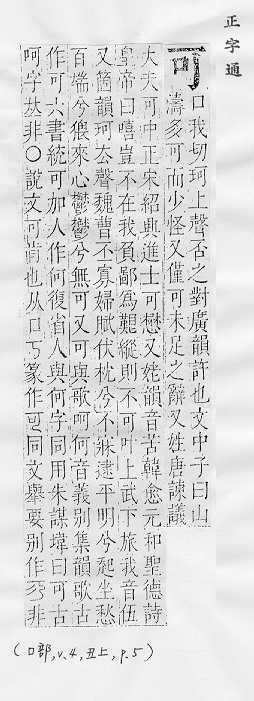 正字通
可 口我切珂上聲否之對廣韻許也文中子曰山
濤多可而少怪又僅可未足之辭又姓唐諫議
大夫可中正宋紹興進士可懋又姥韻音苦韓愈元和聖德詩
皇帝曰嘻豈不在我負鄙爲艱縱則不可叶上武下旅我音伍
又箇韻珂去聲魏曹丕寡婦賦伏枕兮不寐逮平明兮起坐愁
百端兮猥來心鬱鬱兮無可又可與歌呵何音義别集韻歌古
作可六書統可加人作何復省人與何字同用朱謀㙔曰可古
呵字𠀤非○說文可肯也从口丂篆作可同文舉要别作丂非
(口部,v.4,丑上,p.5)